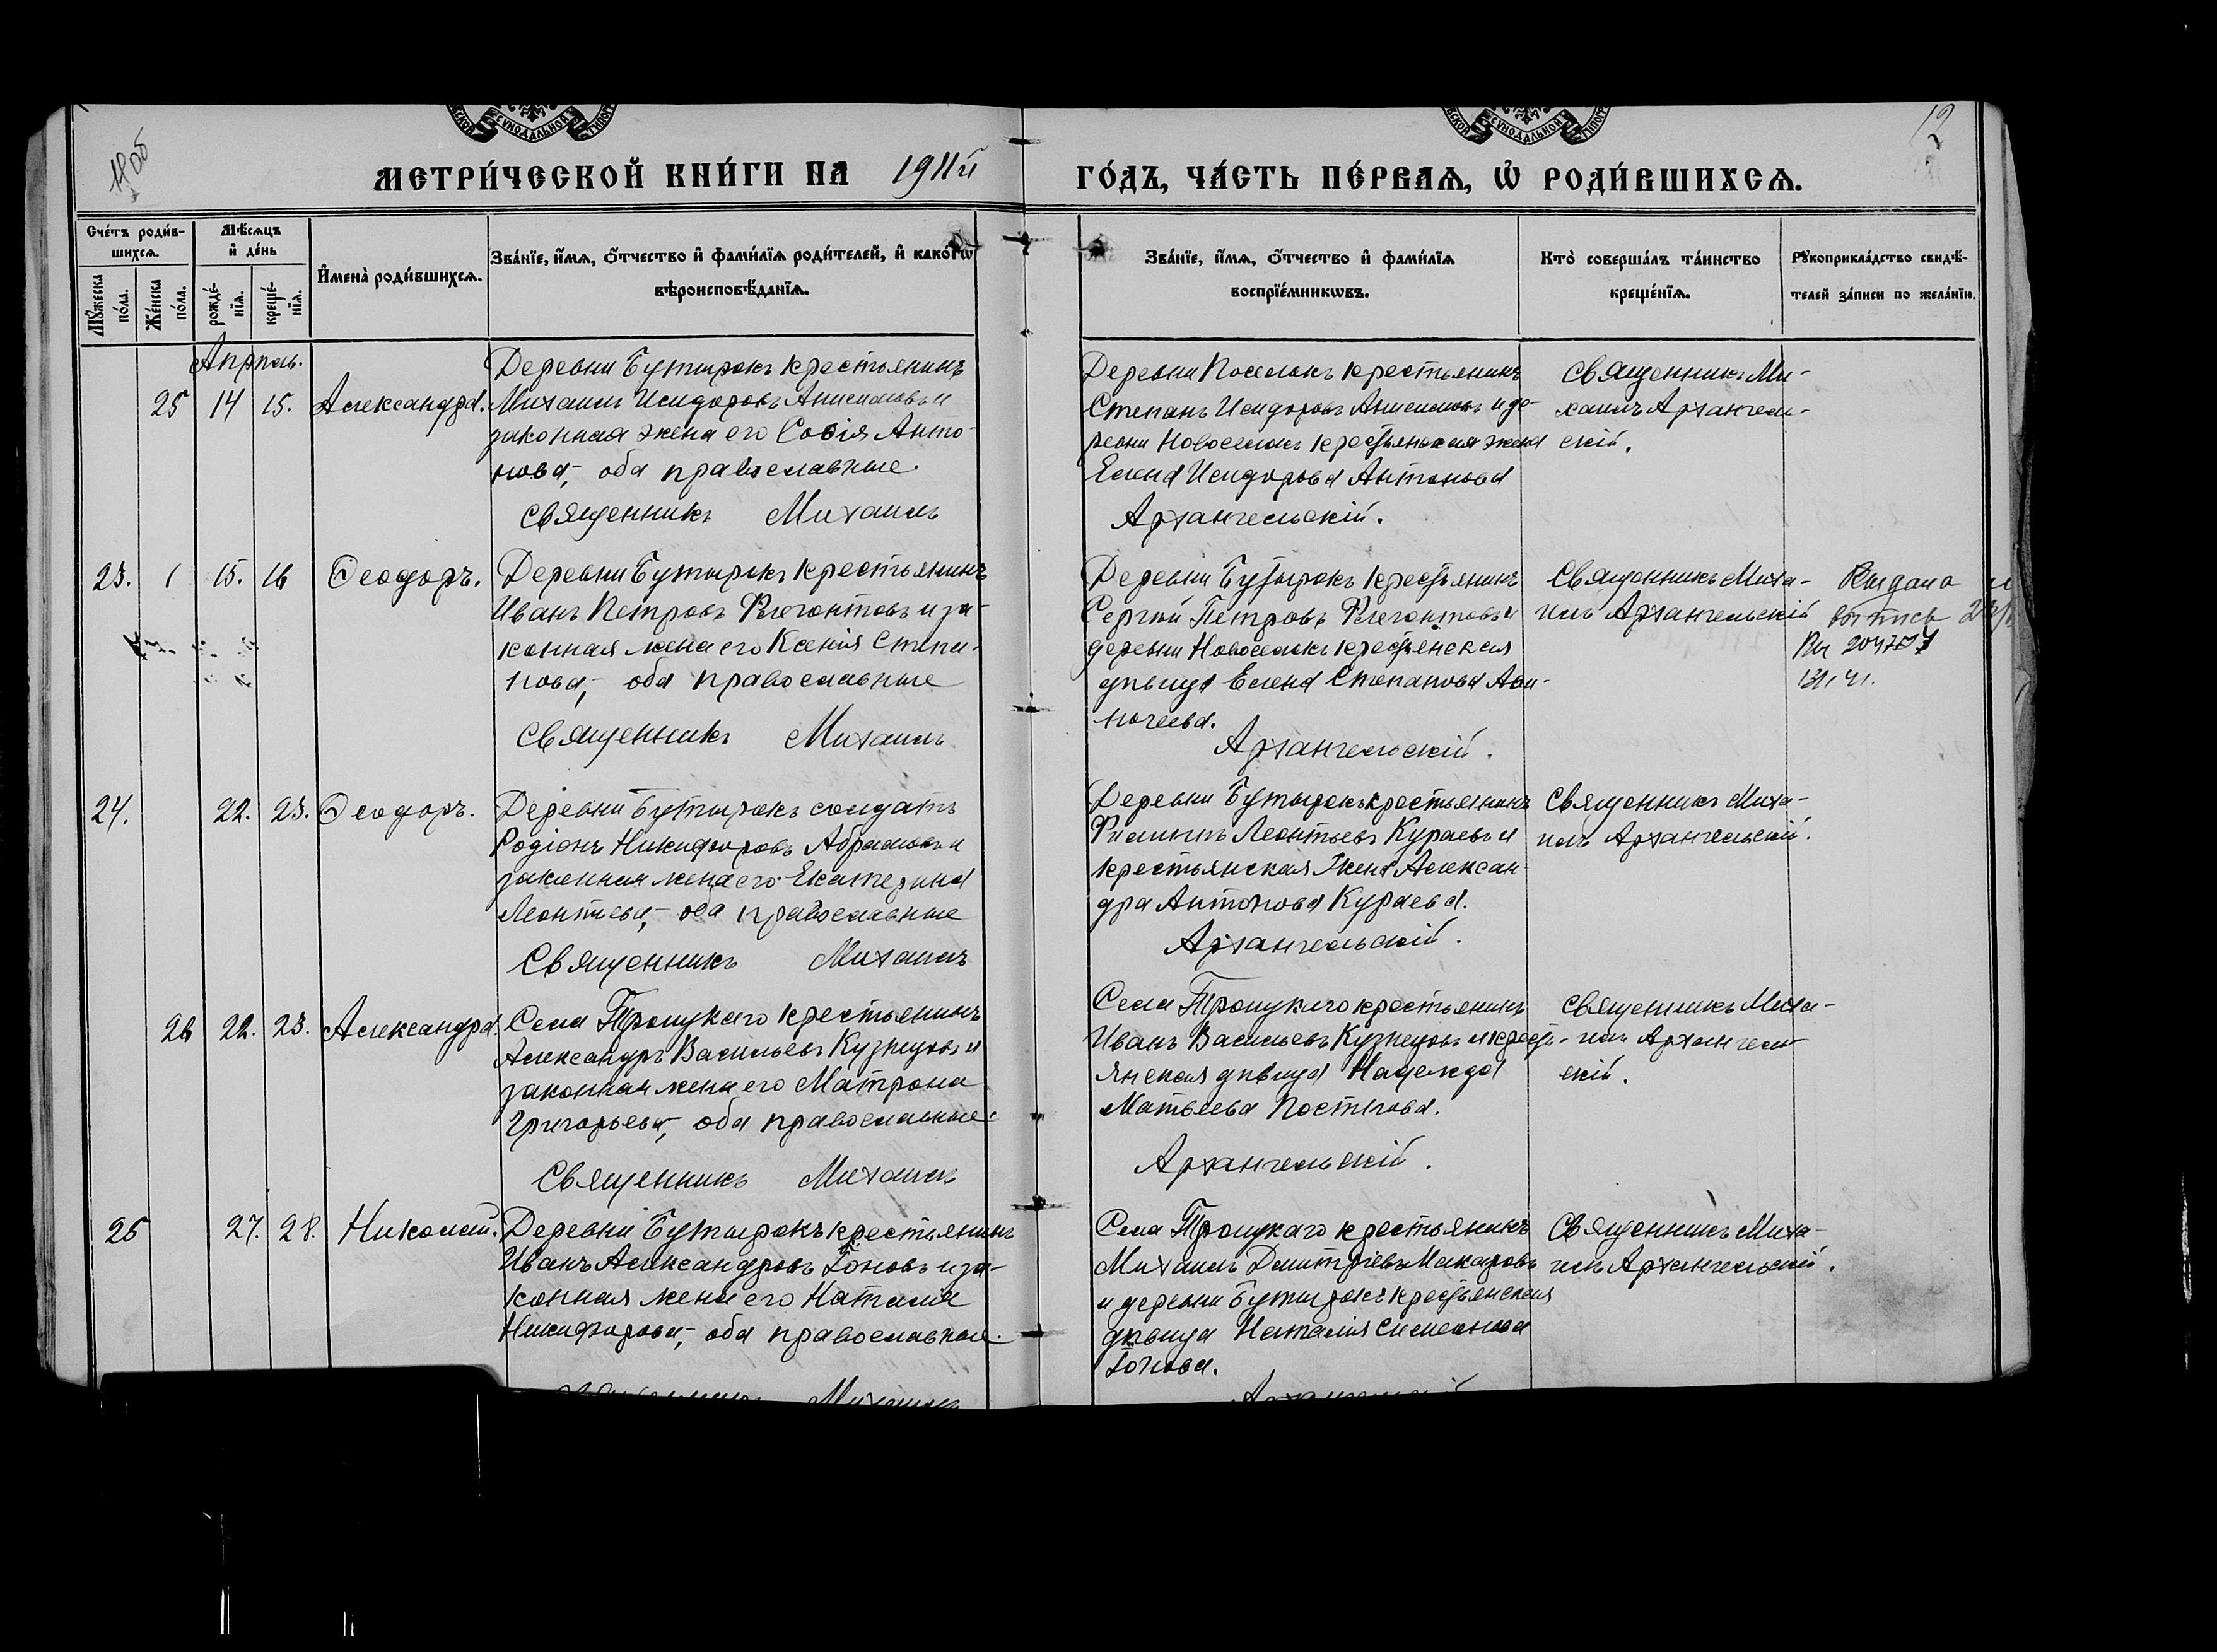 СУНОДАЛЬНОЙ
СУНОДАЛЬНОЙ
12
МЕТРИ́ЧЕСКОЙ КНИ́ГИ НА 1911й ГО́ДЪ, ЧА́СТЬ ПЕ́РВАѦ, Ѡ РОДИ́ВШИХСѦ.
Сче́тъ роди́в-
шихсѧ.
Мꙋ́жеска
по́ла.
Же́нска
по́ла.
Мѣ́сѧцъ
и҆ де́нь
рожде́-
нїѧ.
креще́-
нїѧ.
И҆мена̀ роди́вшихсѧ.
Зва́нїе, и҆́мѧ, ѻ҆́тчество и҆ фами́лїѧ роди́телей, и҆ како́гѡ
вѣроисповѣ́данїѧ.
Зва́нїе, и҆́мѧ, ѻ҆́тчество и҆ фами́лїѧ
воспрїе́мникѡвъ.
Кто̀ соверша́лъ та́инство
креще́нїѧ.
Рꙋкоприкла́дство свидѣ́-
телей за́писи по жела́нїю.
Апрѣль.
25 14 15. Александра.
Деревни Бутырокъ крестьянинъ
Михаилъ Исидоровъ Анисимовъ и
законная жена его Софія Анто-
нова, оба православные.
Священникъ Михаилъ
Деревни Поселокъ крестьянинъ
Степанъ Исидоровъ Анисимовъ и де-
ревни Новоселокъ крестьянская жена
Елена Исидорова Антонова
Архангельскій.
Священникъ Ми-
хаилъ Архангель-
скій.
23. 15. 16 Ѳеодоръ.
Деревни Бутырокъ крестьянинъ
Иванъ Петровъ Флегонтовъ и за-
конная жена его Ксенія Степа-
нова, оба православные
Священникъ Михаилъ
Деревни Бутырокъ крестьянинъ
Сергій Петровъ Флегонтовъ и
деревни Новоселокъ крестьянская
дѣвица Елена Степанова
Архангельскій.
Священникъ Миха-
илъ Архангельскій
Выдана
24. 22. 23. Ѳеодоръ.
Деревни Бутырокъ солдатъ
Родіонъ Никифоровъ Абрамовъ и
законная жена его Екатерина
Леонтьева, оба православные
Священникъ Михаилъ
Деревни Бутырокъ крестьянинъ
Филиппъ Леонтьевъ Кураевъ и
крестьянская жена Алексан-
дра Антонова Кураева.
Архангельскій.
Священникъ Миха-
илъ Архангельскій.
26 22. 23. Александра.
Села Троицкаго крестьянинъ
Александръ Васильевъ Кузнецовъ и
законная жена его Матрона
Григорьева, оба православные.
Священникъ Михаилъ
Села Троицкаго крестьянинъ
Иванъ Васильевъ Кузнецовъ и крест-
янская дѣвица Надежда
Матвеева Постнова.
Архангельскій.
Священникъ Миха-
илъ Архангель-
скій.
25 27. 28. Николай.
Деревни Бутырокъ крестьянинъ
Иванъ Александровъ Іоновъ и за-
конная жена его Наталія
Никифорова, оба православные.
Михаилъ
Села Троицкаго крестьянинъ
Михаилъ Димитріевъ Макаровъ
и деревни Бутырокъ крестьянская
дѣвица Наталія Симеонова
Іонова.
Священникъ Миха-
илъ Архангельскій.